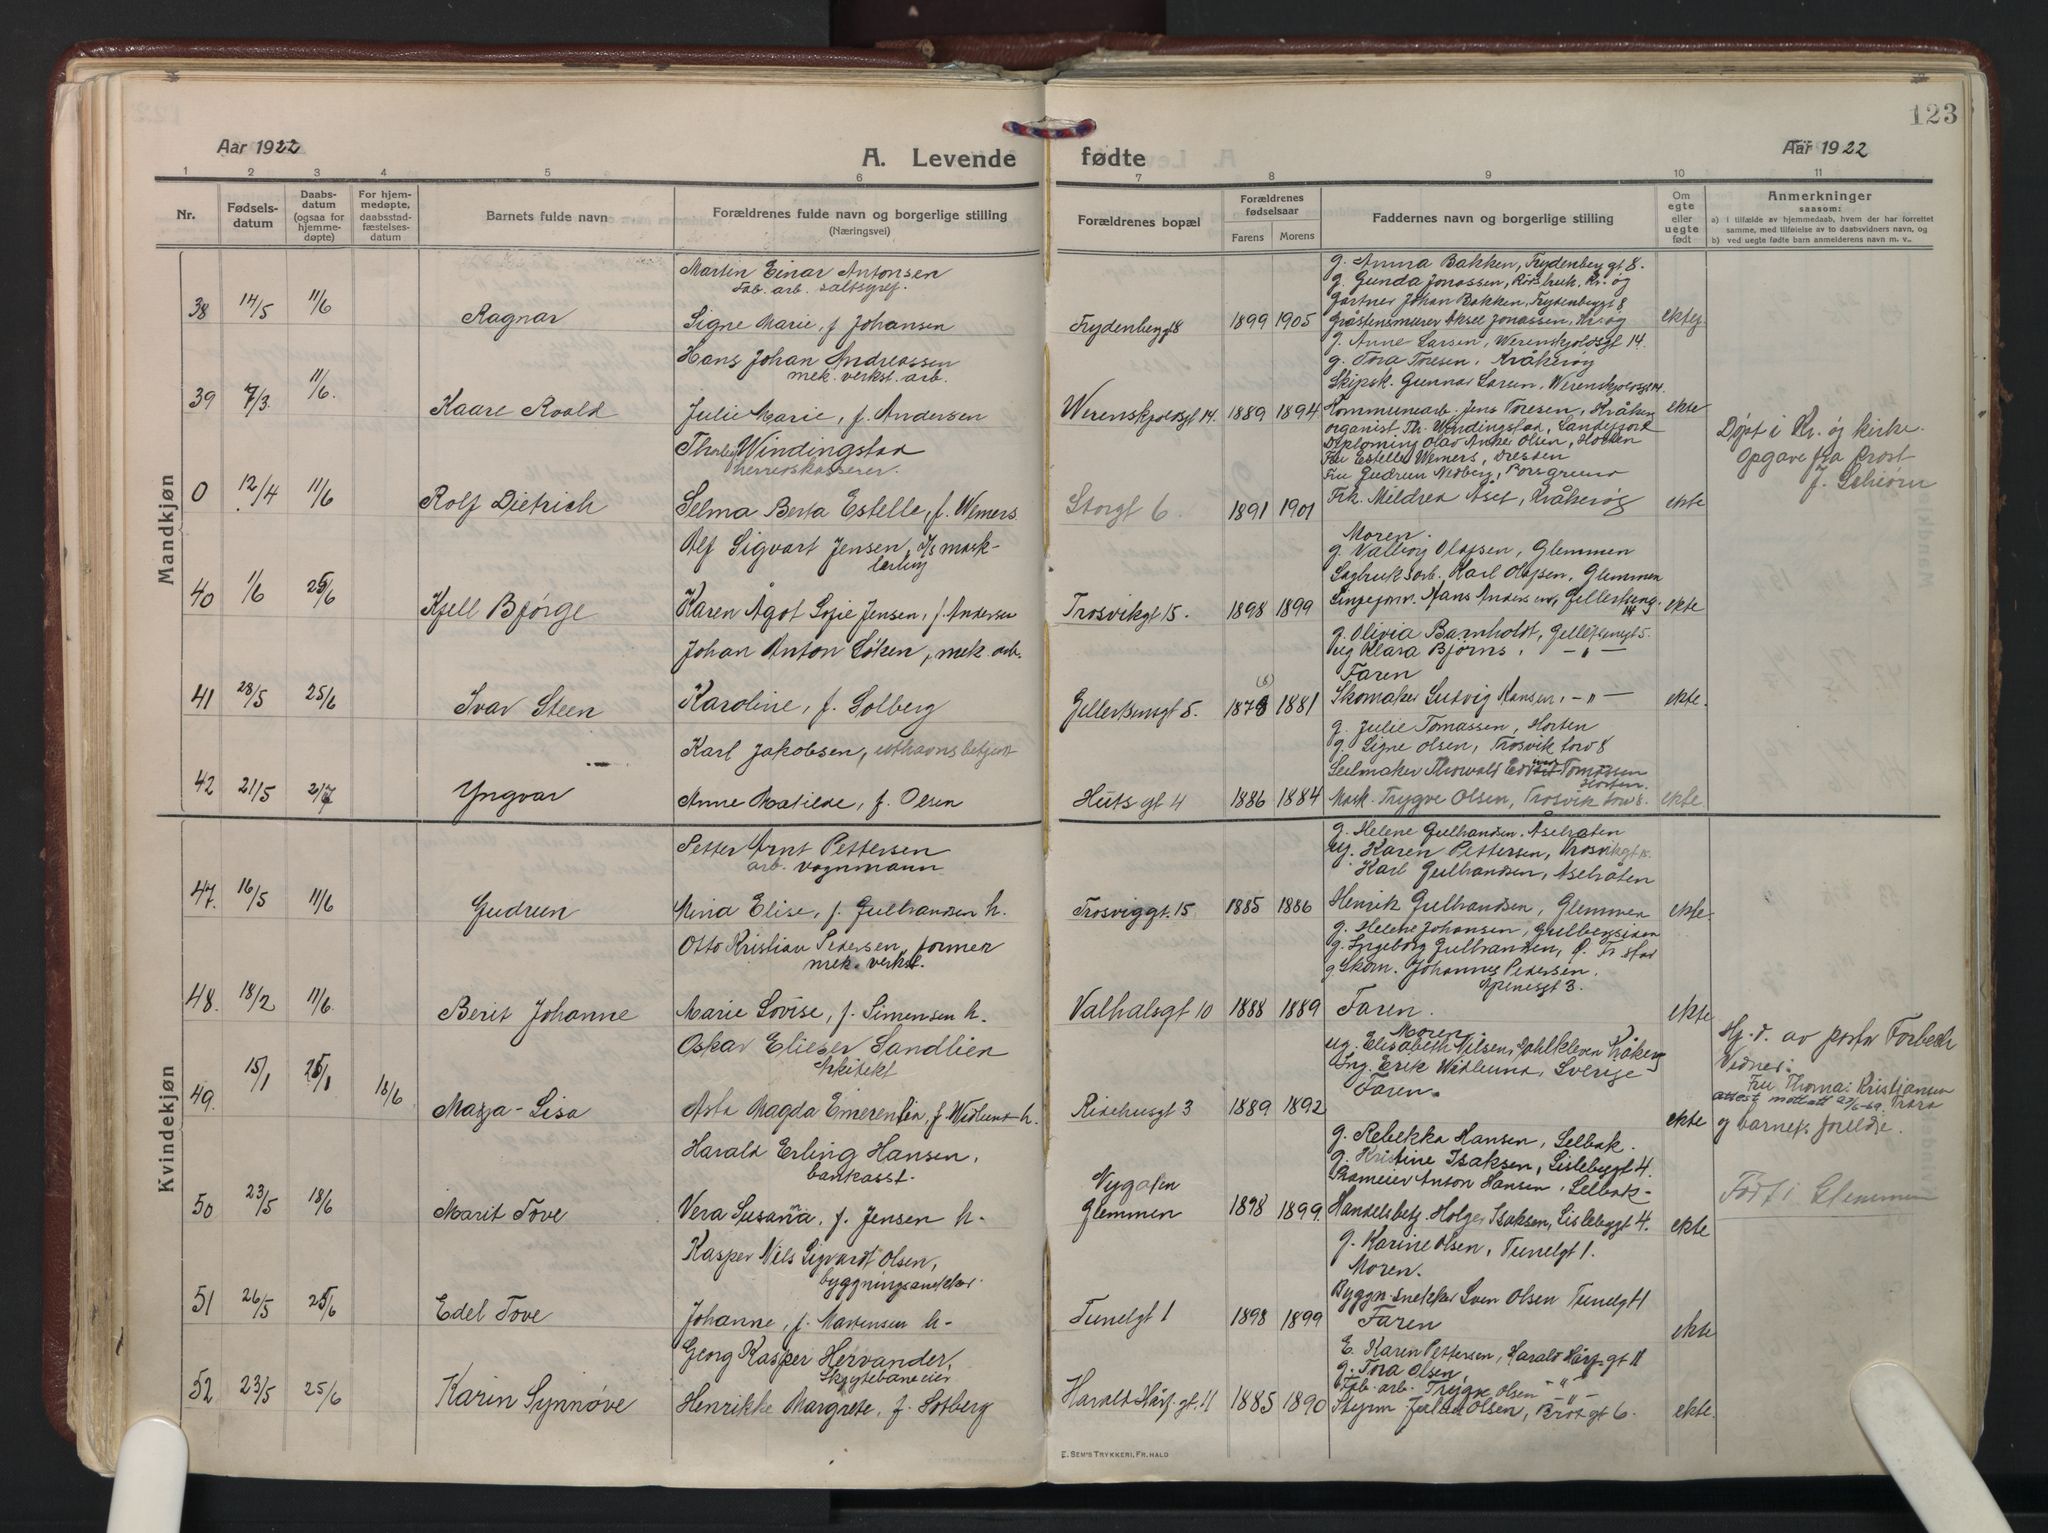 123
Aar 1922
A. Levende
fødte
Aar 1922
1 2 3 4 5 6 7 8 9 10 11
Nr.
Fødsels-
datum
Daabs-
datum
(ogsaa for
hjemme-
døpte)
For hjem-
medøpte,
daabsstad-
fæstelses-
datum
Barnets fulde navn
Forældrenes fulde navn og borgerlige stilling
(Næringsvei)
Forældrenes bopæl
Forældrenes
fødselsaar
Farens Morens
Faddernes navn og borgerlige stilling
Om
egte
eller
uegte
født
Anmerkninger
saasom:
a) i tilfælde av hjemmedaab, hvem der har forrettet
samme, med tilføielse av to daabsvidners navn, og
b) ved uegte fødte barn anmelderens navn m. v..
Mandkjøn
Martin Einar Antonsen
Fab. arb.
38 14/5 11/6 Ragnar Signe Marie, f. Johansen Frydenberggt 8 1899 1905
g. Anna Bakken, Frydenberg gt 8.
g. Gunda Jonassen, Kr. øg
Gartner Johan Bakken, Frydenberggt 8
Aksel Jonassen, Kr. øg
Hans Johan Andreassen
mek. verkst. arb.
39 7/3. 11/6. Kaare Roald Julie Marie, f. Andersen Werenskjoldsgt 14. 1889 1894 ekte
g. Anne Larsen, Werenskjoldsgt 14.
g. Tora Toresen, Kråkerøg
Skipsk. Gunnar Larsen, Werenskjoldsgt 14.
Kommunearb. Jens Toresen, Kråkerø
Windingstad
herredskasserer.
0 12/4 11/6 Rolf Dietrich Selma Berta Estelle, f. Wemers. Storgt 6 1891 1901 ekte
organist Th. Windingstad, Sandefjord
Diploming Olav Anker Olsen, Horten
Fru Estelle Wemers, Dresden
Fru Gudrun Nedberg, Porsgrund
Frk. Mildred Aset, Kråkerøg
Døpt i Kr. øg kirke.
Opgave fra prost
J. Schiørn
Alf Sigvart Jensen,
40 1/6 25/6 Kjell Bjørge Karen Ågot Sofie Jensen, f. Andersen Trosvikgt 15. 1898 1899 ekte
Moren.
g. Valborg Olafsen, Glemmen
Sagbruksarb. Karl Olafsen, Glemmen
Hans Andersen, Gellertseng.
14
Johan Anton Löken, mek. arb.
41 28/5 25/6 Ivar Steen Karoline, f. Solberg Gellertsensgt 5. 1881 ekte.
g. Olivia Barnholdt, Gellertsensgt 5.
ug Klara Bjørns, — " —
Faren
Skomaker Ludvig Hansen, — " —
Karl Jakobsen,
42 21/5 2/7 Yngvar Anne Matilde, f. Olsen Huts gt 4 1886 1884 ekte
g. Julie Tomassen, Horten
g. Signe Olsen, Trosvik torv 8
Seilmaker Thorvald Tomassen
Horten.
Mask. Trygve Olsen, Trosvik torv 8.
Kvindekjøn
Petter Arnt Pettersen
arb. vognmann
47. 16/5 11/6 Gudrun Mina Elise, f. Gulbrandsen h. Trosviggt. 15 1885 1886 ekte.
g. Helene Gulbrandsen, Aselråten
ug. Karen Pettersen, Trosvikgt 15.
Karl Gulbrandsen, Aselråten
Henrik Gulbrandsen, Glemmen
Otto Kristian Pedersen, former
mek. verkst.
48. 18/2 11/6. Berit Johanne Marie Lovise, f. Simensen h. Valhalsgt 10 1888 1889 ekte
g. Helene Johansen, Gulbergsiden
g. Ingeborg Gulbrandsen,
Johannes Pedersen.
Apenesgt 3.
Faren.
Oskar Elieser Sandlien
Arkitekt
49. 15/1 18/6 Majja-Lisa Magda Emerentia, f. Widlund h. Ridehusgt 3 1889 1892 ekte
Moren.
ug. Elisabeth Nilsen, Dahlkleven Kråkerøg
Ing. Erik Widlund, Sverige
Faren.
Hj. d. av pastor Forbech
Vidner:
Fru Thoma Kristiansen
attest mottatt 27/6-69. Trara
og barnets foreldre.
Harald Erling Hansen,
bankasst.
50 23/5 18/6 Marit Tove Vera Susanna, f. Jensen h. Nygaten
Glemmen 1898 1899. ekte
g. Rebekka Hansen, Selbak.
g. Kristine Isaksen, Lislebygt 4.
Anton Hansen, Selbak
Handelsbetj. Holger Isaksen, Lislebygt 4.
Født i Glemmen
Kasper Nils Sigvardt Olsen,
byggningssnekker.
51 26/5 25/6 Edel Tove Johanne, f. Martensen h. Tunelgt 1 1898 1899 ekte
g. Karine Olsen, Tunelgt 1.
Moren.
Byggn. snekker Sven Olsen Tunelgt 1
Faren
Georg Kasper Hervander,
Skytebaneeier
52 23/5 25/6 Karin Synnøve Henrikke Margrete, f. Solberg Harald Hårf. gt. 11 1885 1890 ekte.
E. Karen Pettersen, Harald Hårf. gt 11
g. Tora Olsen,
Fab. arb. Trygve Olsen — " —
Styrm Olsen, Brogt 6.
E. SEM'S TRYKKERI, FR.HALD